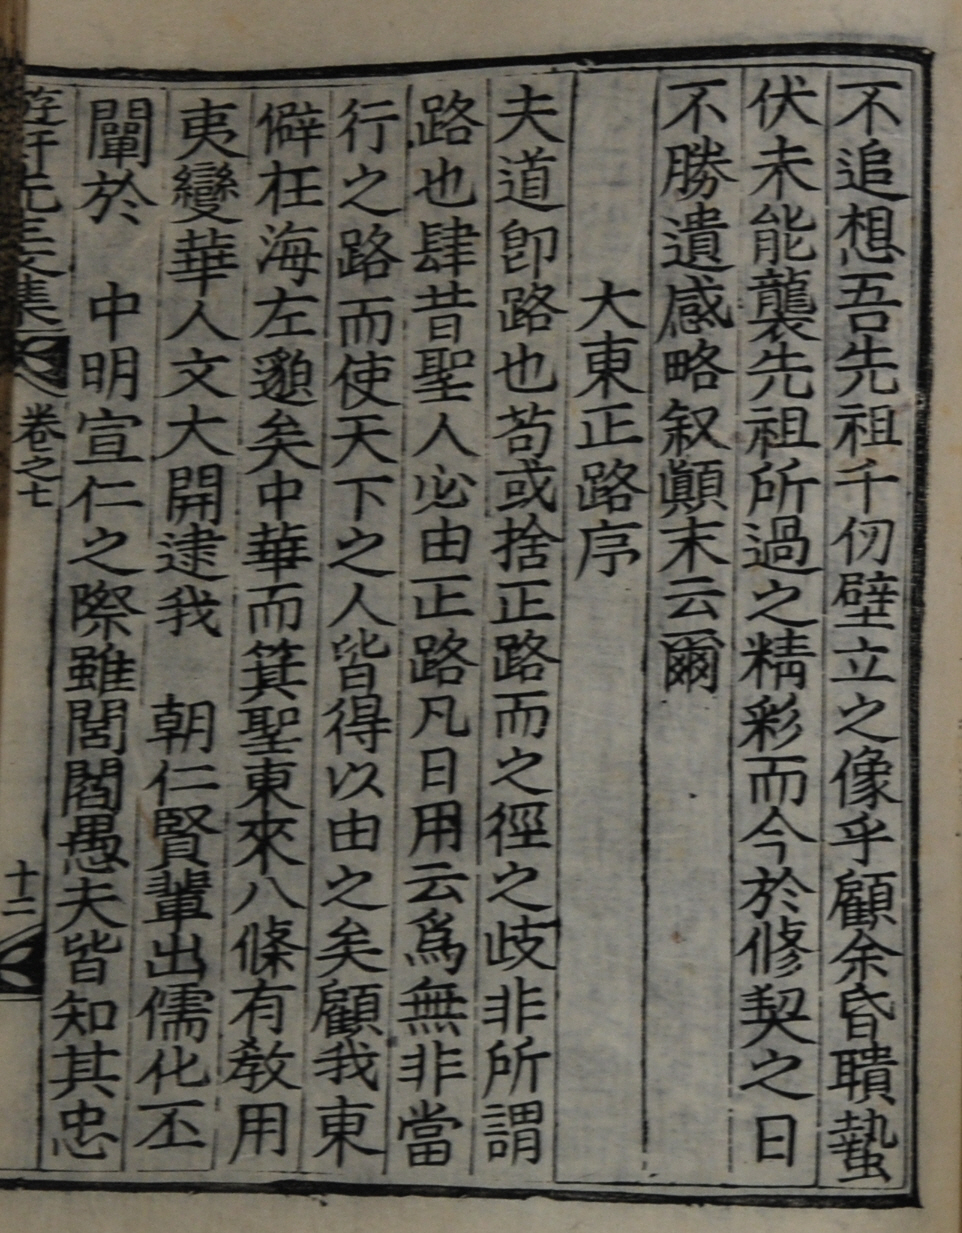 不追想吾先祖千仞壁立之像乎顧余昏聵蟄
伏未能襲先祖所過之精彩而今於修契之日
不勝遺感略叙顚末云爾
大東正路序
夫道卽路也苟或捨正路而之徑之歧非所謂
路也肆昔聖人必由正路凡日用云爲無非當
行之路而使天下之人皆得以由之矣顧我東
僻在海左邈矣中華而箕聖東來八條有敎用
夷變華人文大開逮我　朝仁賢輩出儒化丕
闡於　中明宣仁之際雖閭閻愚夫皆知其忠
先生文集
卷之七
十二